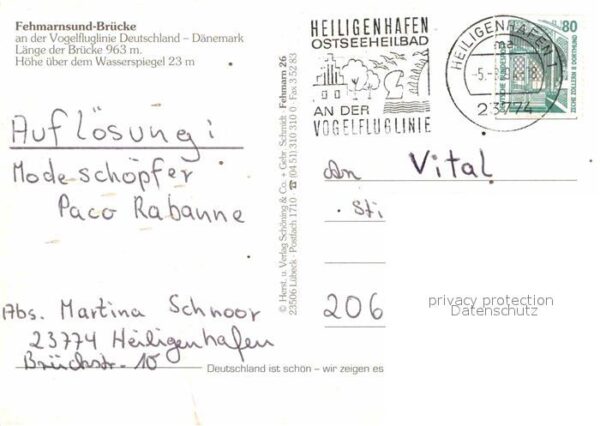 Fehmarnsund-Brücke
an der Vogelfluglinie Deutschland – Dänemark
Länge der Brücke 963 m.
Höhe über dem Wasserspiegel 23 m
Auflösung:
Modeschöpfer
Paco Rabanne
Abs. Martina Schnoor
23774 Heiligenhafen
Brückstr. 10
Deutschland ist schön – wir zeigen es
© Herst. u. Verlag Schöning & Co. + Gebr. Schmidt Fehmarn 26
23506 Lübeck · Postfach 1710 ☎ (04 51) 310 310 0 · Fax 3 52 83
HEILIGENHAFEN
OSTSEEHEILBAD
AN DER
VOGELFLUGLINIE
HEILIGENHAFEN 1
ma
23774
80
DEUTSCHE BUNDESPOST
ZECHE ZOLLERN II DORTMUND
An Vital
Sti
206
privacy protection
Datenschutz